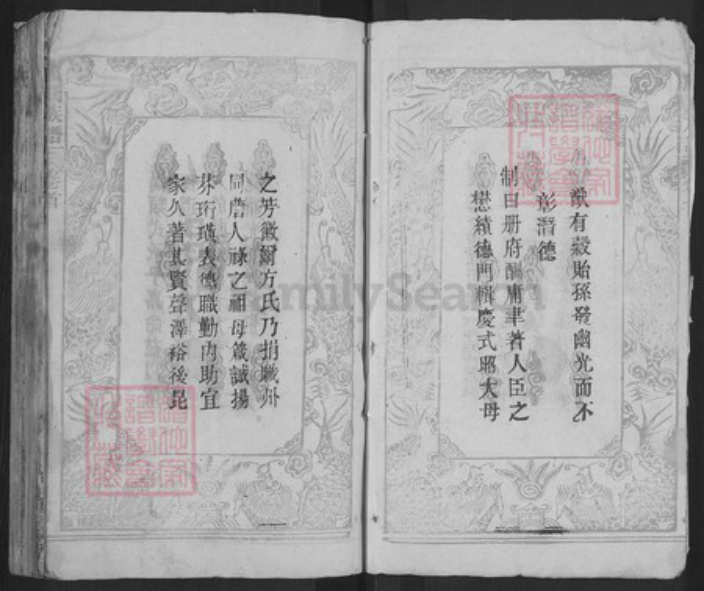 猷有穀貽孫發幽光而不
彰潛德
制曰册府酬庸聿著人臣之
懋績德門輯慶式昭大母
之芳徽爾方氏乃捐職州
同唐人祿之祖母箴誡揚
芬珩璜表德職勤內助宜
家久著其賢聲澤裕後昆
FamilySearch